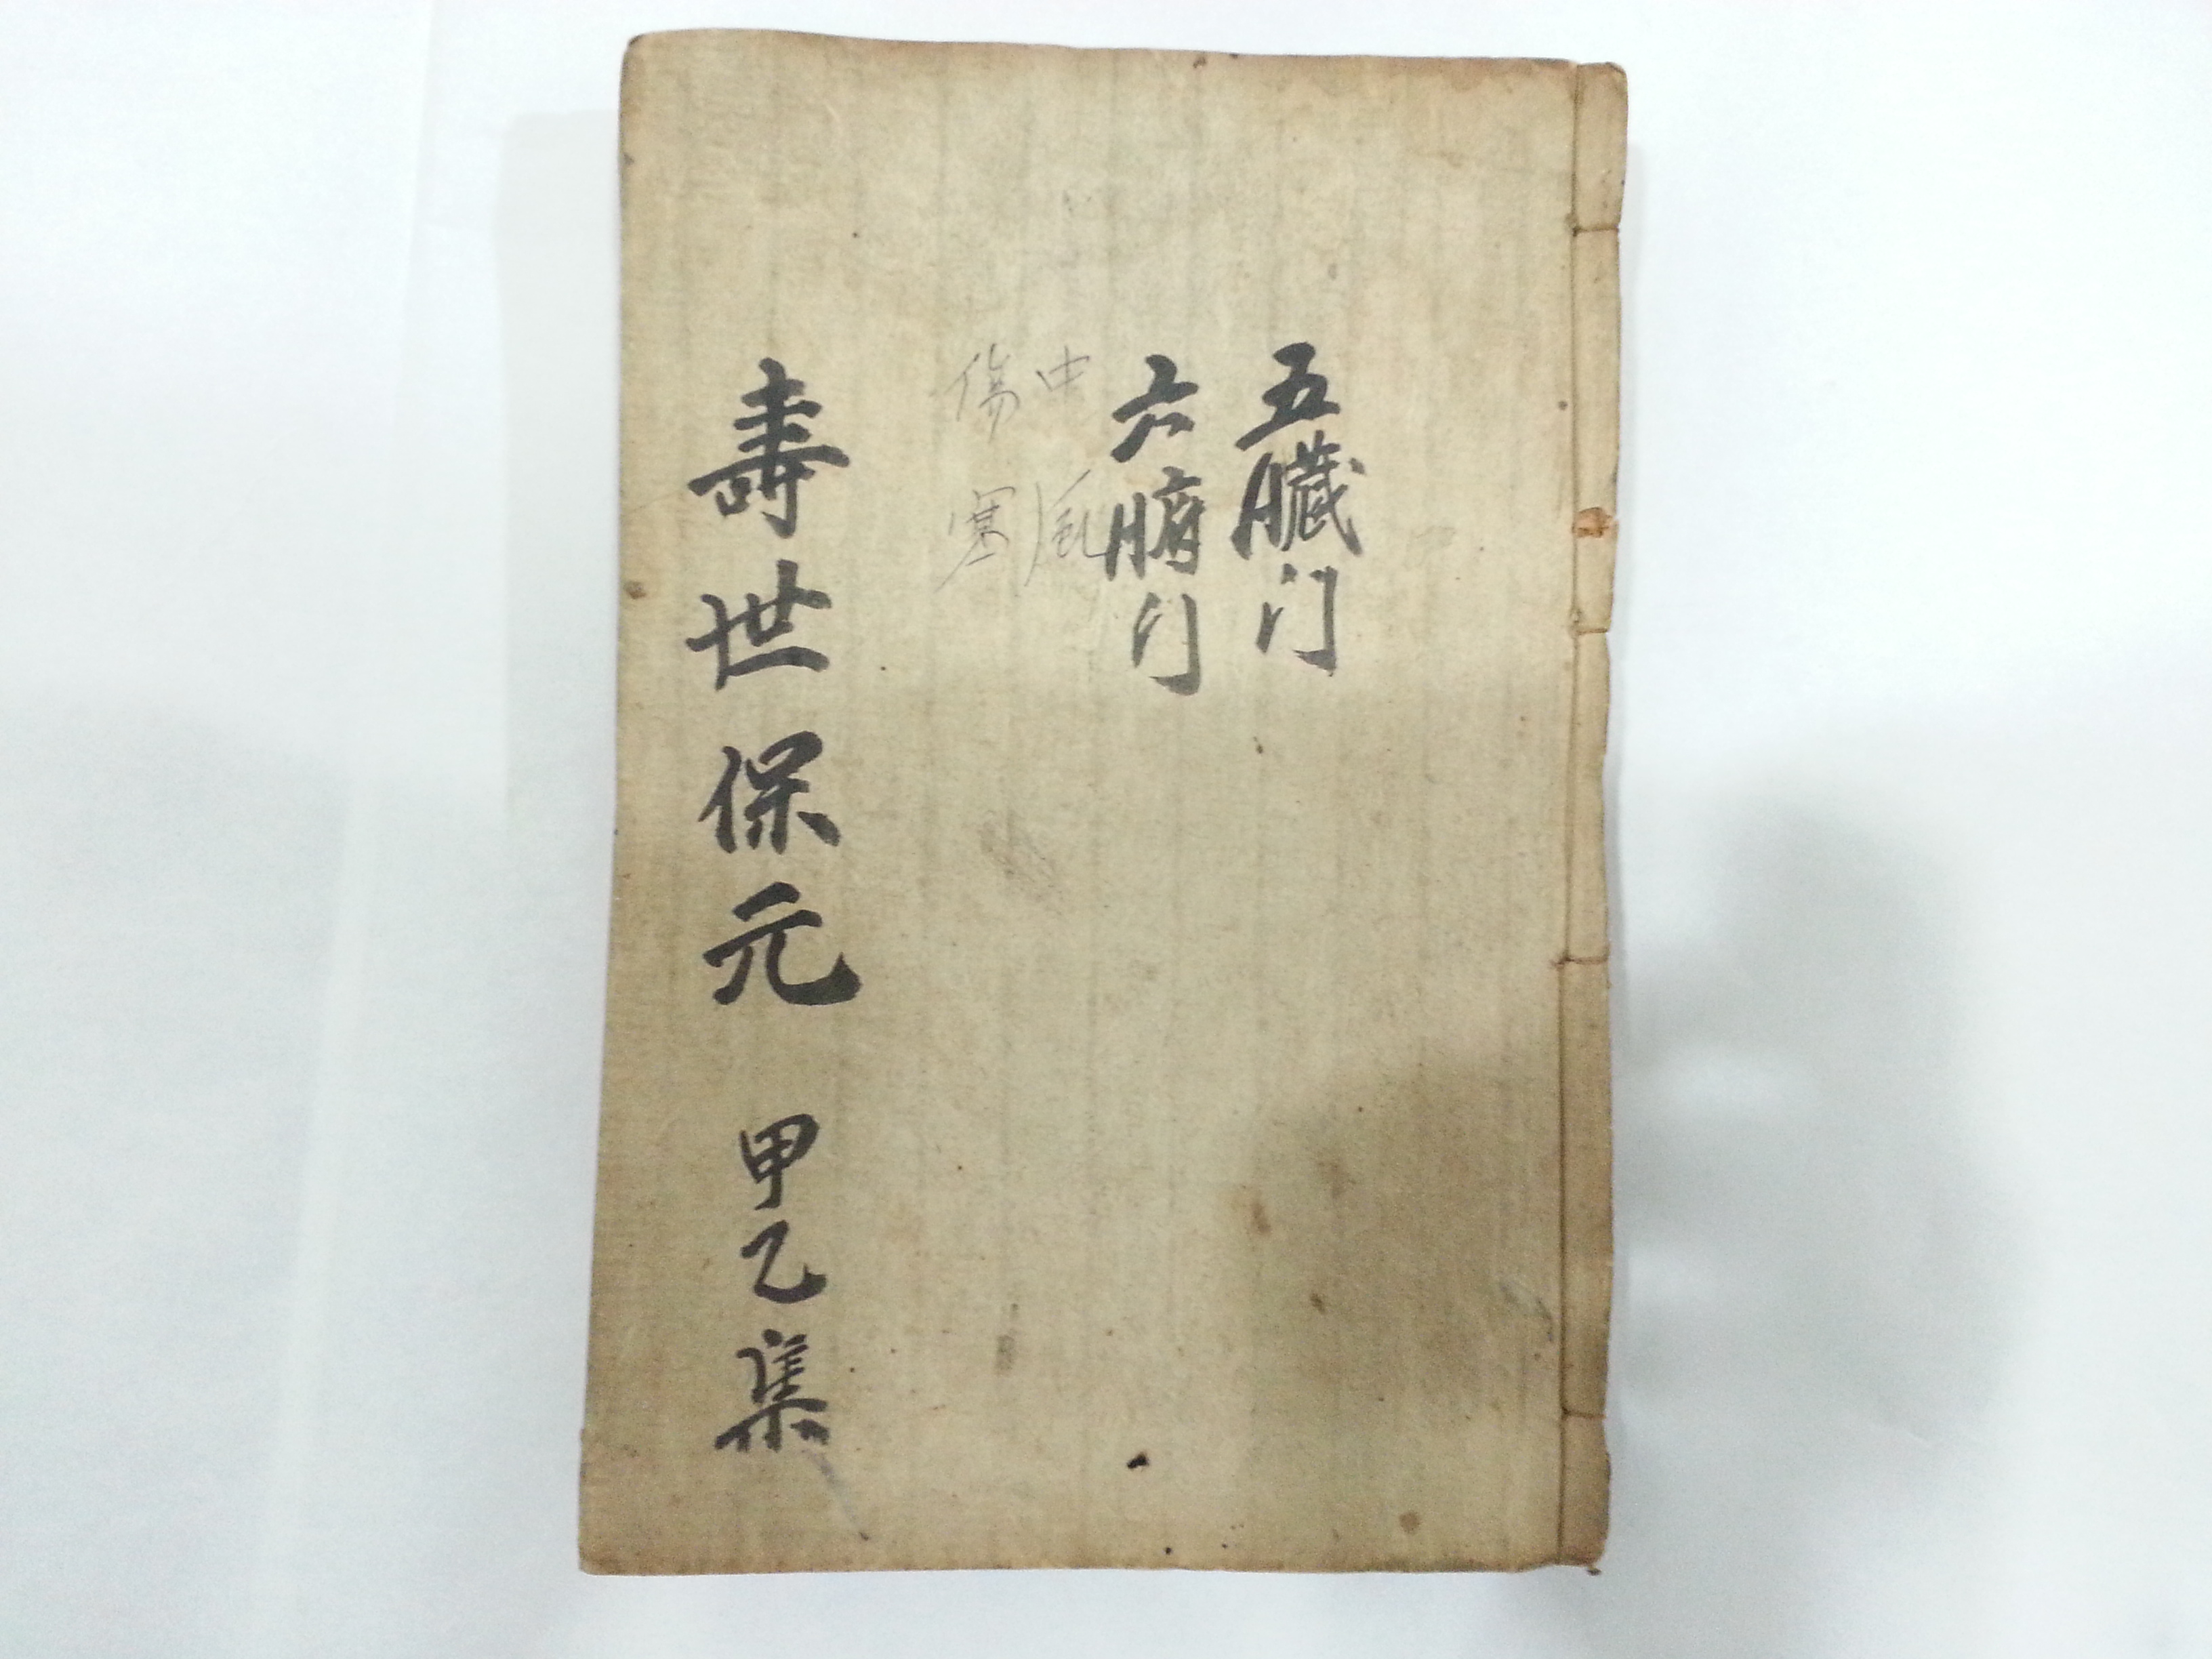 五臟门
六腑门
中風
傷寒
壽世保元 甲乙集